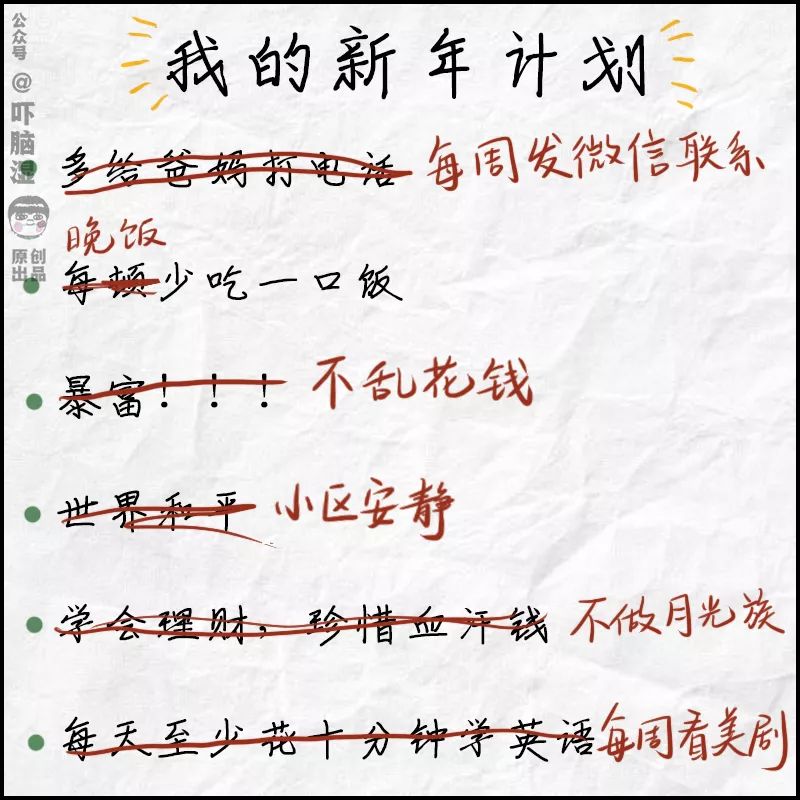 我的新年计划
公众号@吓脑湿
原创出品
多给爸妈打电话 每周发微信联系
晚饭
每顿少吃一口饭
暴富!!! 不乱花钱
世界和平 小区安静
学会理财,珍惜血汗钱 不做月光族
每天至少花十分钟学英语 每周看美剧